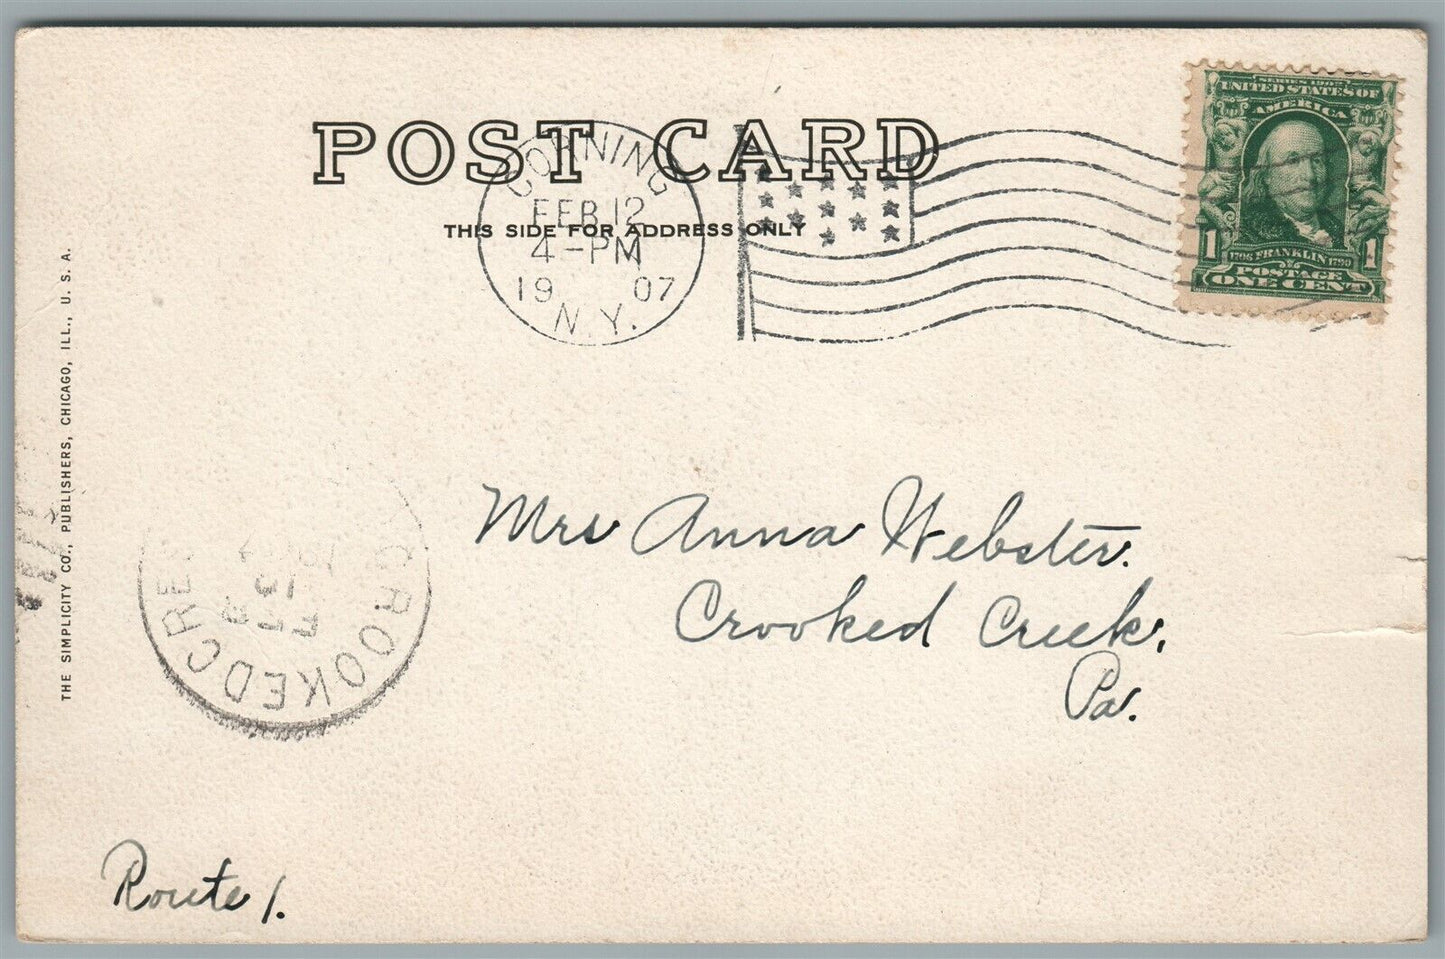 POST CARD
THIS SIDE FOR ADDRESS ONLY
CORNING
FEB 12
4-PM
19 07
N.Y.
SERIES 1902
UNITED STATES OF
AMERICA
1 1
1706 FRANKLIN 1790
POSTAGE
ONE CENT
THE SIMPLICITY CO., PUBLISHERS, CHICAGO, ILL., U. S. A.
Mrs Anna Webster.
Crooked Creek,
Pa.
CROOKED CREE
FEB
Route 1.